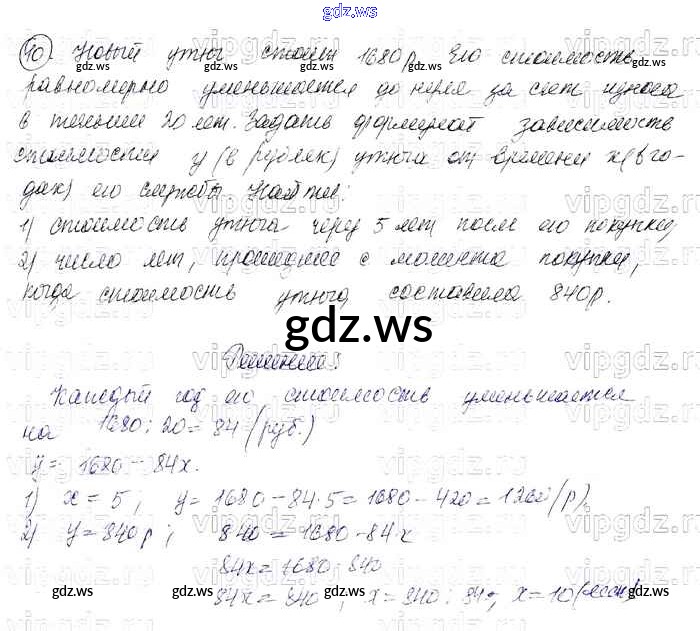 gdz.ws
40. Новый утюг стоит 1680р. Его стоимость
равномерно уменьшается до нуля за счет износа
в течении 20 лет. Задать формулой зависимость
стоимости y (в рублях) утюга от времени x (в го-
дах) его службы. Найти:
1) стоимость утюга через 5 лет после его покупки,
2) число лет, прошедшее с момента покупки,
когда стоимость утюга составила 840р.
gdz.ws
Решение:
Каждый год его стоимость уменьшается
на 1680 : 20 = 84 (руб.)
y = 1680 - 84x.
1) x = 5; y = 1680 - 84·5 = 1680 - 420 = 1260 (р),
2) y = 840р; 840 = 1680 - 84·x
84x = 1680 - 840
84x = 840; x = 840 : 84; x = 10